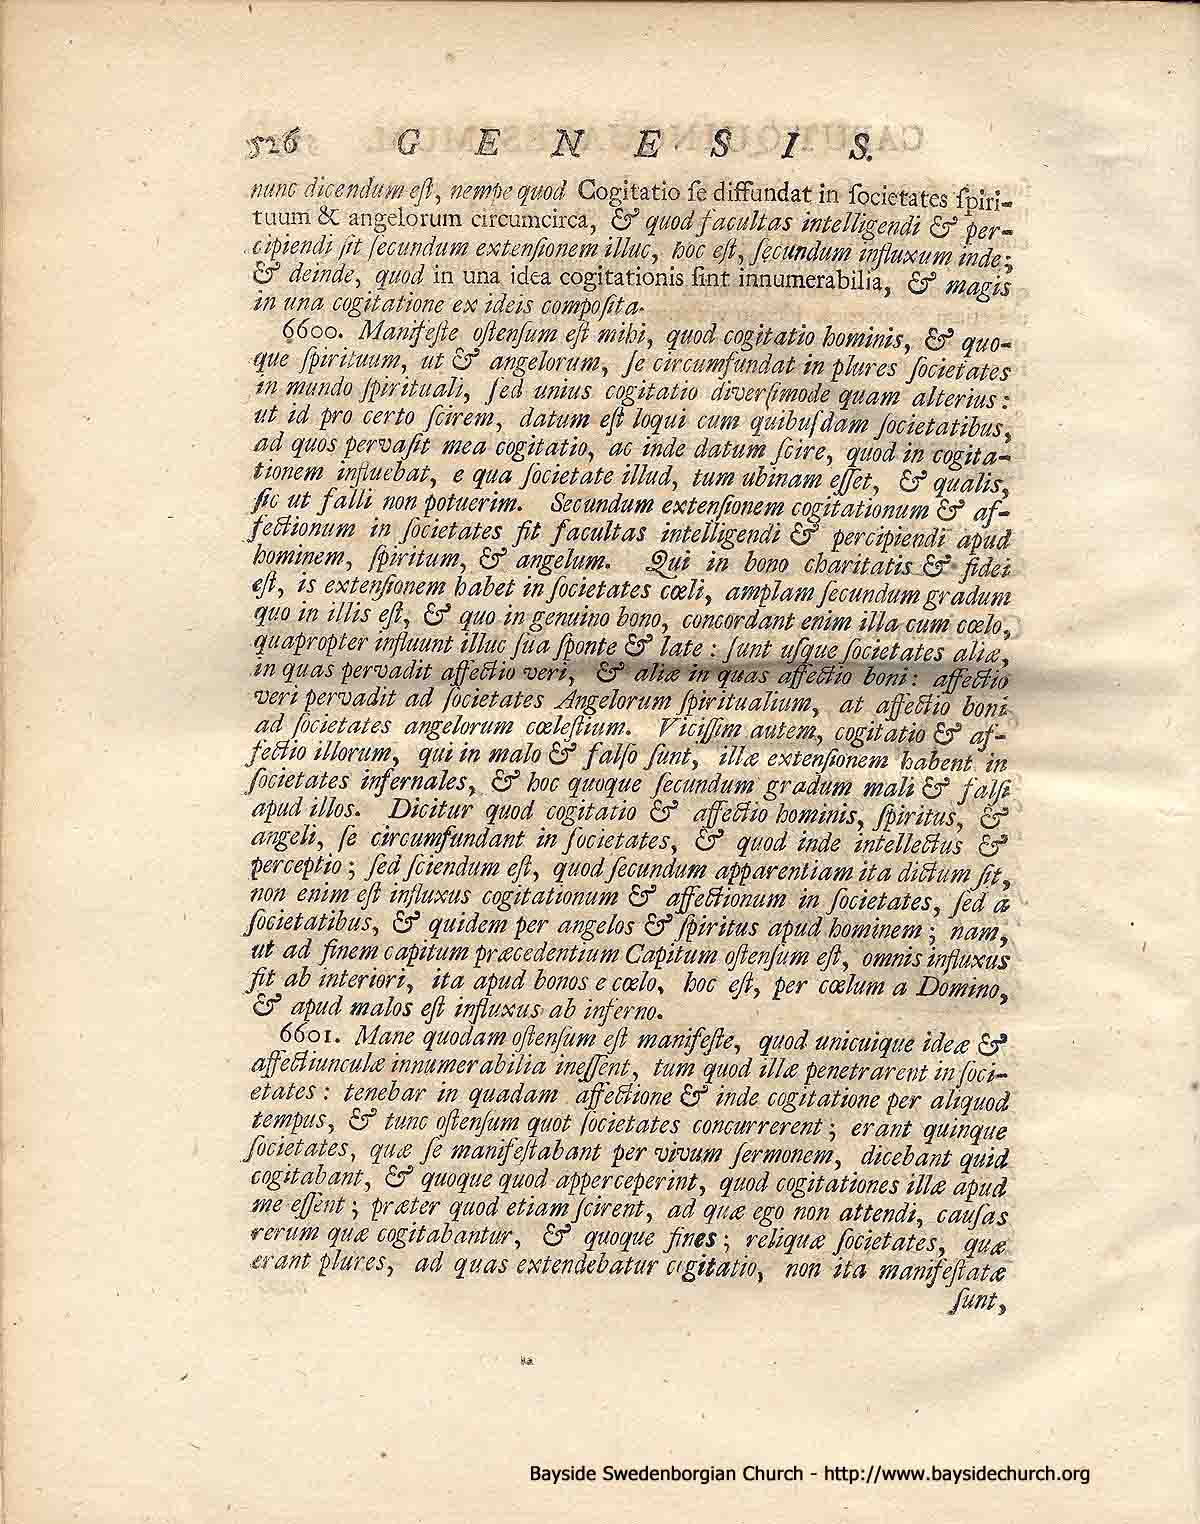 526 G E N E S I S.
nunc dicendum eſt, nempe quod Cogitatio ſe diffundat in ſocietates ſpiri-
tuum & angelorum circumcirca, & quod facultas intelligendi & per-
cipiendi ſit ſecundum extenſionem illuc, hoc eſt, ſecundum influxum inde;
& deinde, quod in una idea cogitationis ſint innumerabilia, & magis
in una cogitatione ex ideis compoſita.
6600. Manifeſte oſtenſum eſt mihi, quod cogitatio hominis, & quo-
que ſpirituum, ut & angelorum, ſe circumfundat in plures ſocietates
in mundo ſpirituali, ſed unius cogitatio diverſimode quam alterius:
ut id pro certo ſcirem, datum eſt loqui cum quibuſdam ſocietatibus,
ad quos pervaſit mea cogitatio, ac inde datum ſcire, quod in cogita-
tionem influebat, e qua ſocietate illud, tum ubinam eſſet, & qualis,
ſic ut falli non potuerim. Secundum extenſionem cogitationum & af-
fectionum in ſocietates fit facultas intelligendi & percipiendi apud
hominem, ſpiritum, & angelum. Qui in bono charitatis & fidei
eſt, is extenſionem habet in ſocietates cœli, amplam ſecundum gradum
quo in illis eſt, & quo in genuino bono, concordant enim illa cum cœlo,
quapropter influunt illuc ſua ſponte & late: ſunt uſque ſocietates aliæ,
in quas pervadit affectio veri, & aliæ in quas affectio boni: affectio
veri pervadit ad ſocietates Angelorum ſpiritualium, at affectio boni
ad ſocietates angelorum cœleſtium. Viciſſim autem, cogitatio & af-
fectio illorum, qui in malo & falſo ſunt, illæ extenſionem habent in
ſocietates infernales, & hoc quoque ſecundum gradum mali & falſi
apud illos. Dicitur quod cogitatio & affectio hominis, ſpiritus, &
angeli, ſe circumfundant in ſocietates, & quod inde intellectus &
perceptio; ſed ſciendum eſt, quod ſecundum apparentiam ita dictum ſit,
non enim eſt influxus cogitationum & affectionum in ſocietates, ſed a
ſocietatibus, & quidem per angelos & ſpiritus apud hominem; nam,
ut ad finem capitum præcedentium Capitum oſtenſum eſt, omnis influxus
fit ab interiori, ita apud bonos e cœlo, hoc eſt, per cœlum a Domino,
& apud malos eſt influxus ab inferno.
6601. Mane quodam oſtenſum eſt manifeſte, quod unicuique ideæ &
affectiunculæ innumerabilia ineſſent, tum quod illæ penetrarent in ſoci-
etates: tenebar in quadam affectione & inde cogitatione per aliquod
tempus, & tunc oſtenſum quot ſocietates concurrerent; erant quinque
ſocietates, quæ ſe manifeſtabant per vivum ſermonem, dicebant quid
cogitabant, & quoque quod apperceperint, quod cogitationes illæ apud
me eſſent; præter quod etiam ſcirent, ad quæ ego non attendi, cauſas
rerum quæ cogitabantur, & quoque fines; reliquæ ſocietates, quæ
erant plures, ad quas extendebatur cogitatio, non ita manifeſtatæ
ſunt,
Bayside Swedenborgian Church - http://www.baysidechurch.org